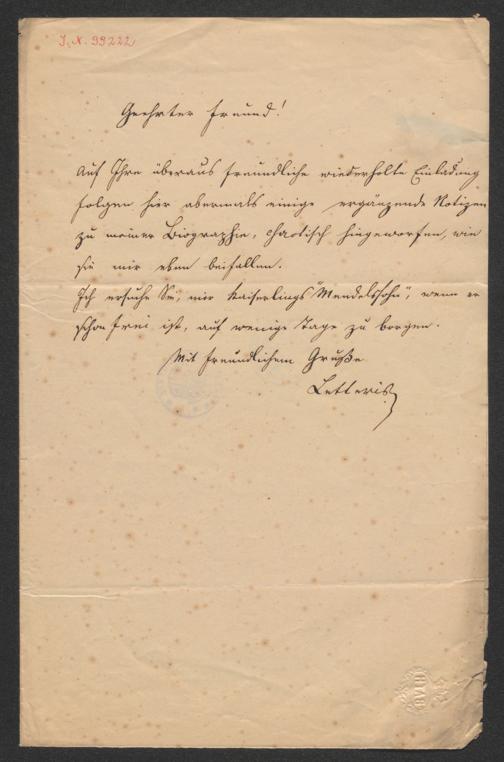 I. N. 99222
Geehrter Freund!
Auf Ihre überaus freundliche wiederholte Einladung
folgen hier abermals einige ergänzende Notizen
zu meiner Biographie, chaotisch hingeworfen, wie
sie mir eben beifallen.
Ich ersuche Sie, mir Kaiserlings "Mendelssohn", wenn er
schon frei ist, auf wenige Tage zu borgen.
Mit freundlichem Gruße
Letteris
BATH